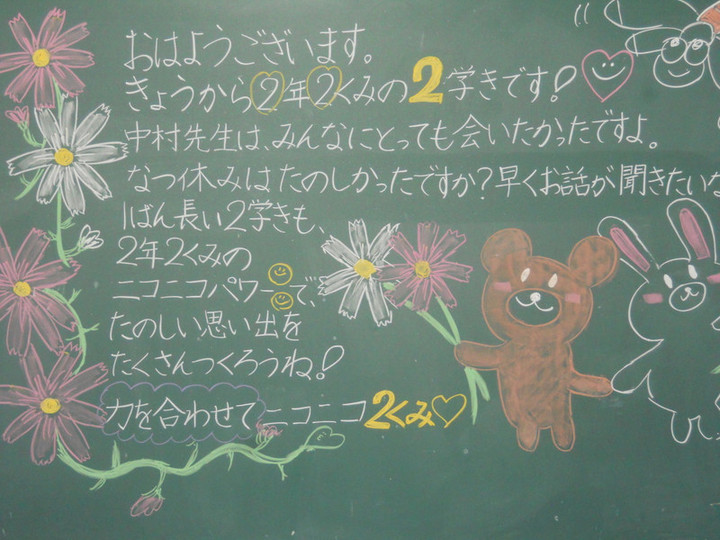 おはようございます。
きょうから2年2くみの2学きです!
中村先生は、みんなにとっても会いたかったですよ。
なつ休みはたのしかったですか?早くお話が聞きたいな
1ばん長い2学きも、
2年2くみの
ニコニコパワーで、
たのしい思い出を
たくさんつくろうね!
力を合わせてニコニコ2くみ♡